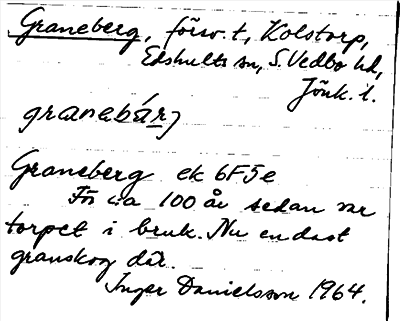 Graneberg, försv. t, Kolstorp,
Edshults sn, S. Vedbo hd,
Jönk. l.
granebárj
Graneberg ek 6F5e
För ca 100 år sedan var
torpet i bruk. Nu endast
granskog där.
Inger Danielsson 1964.